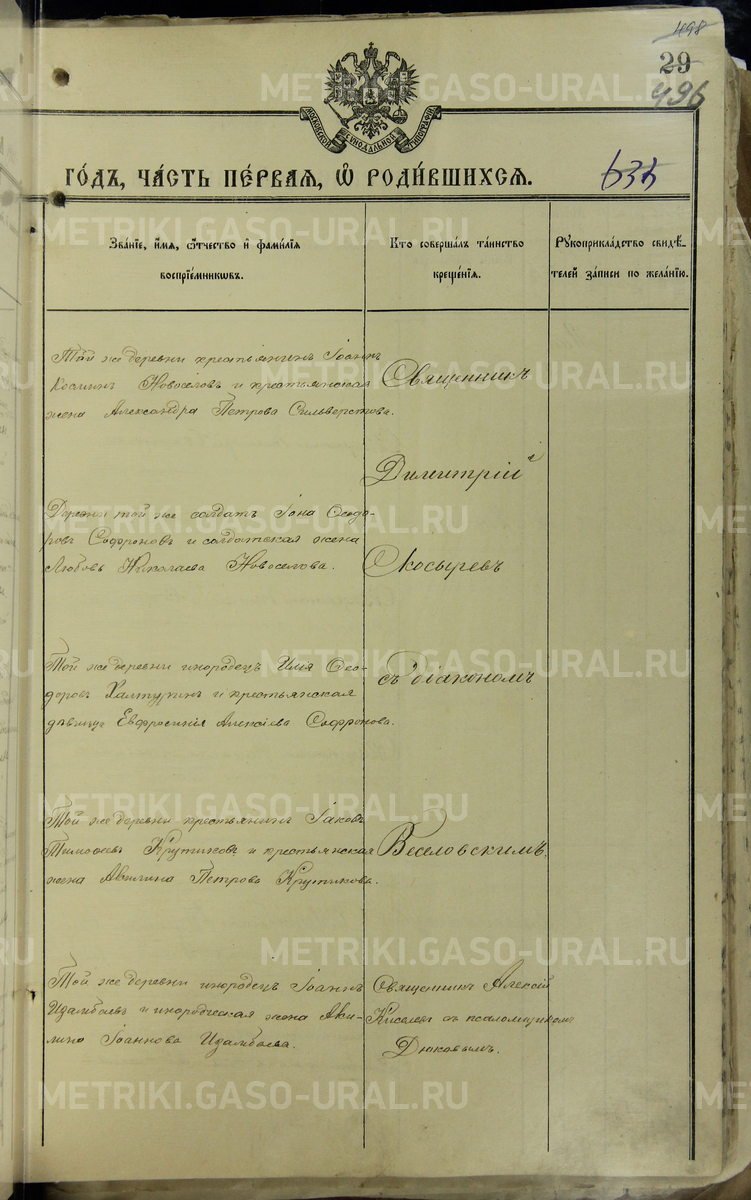 498
29
496
МОСКОВСКОЙ СѴНОДАЛЬНОЙ ТИПОГРАФІИ
ГО́ДЪ, ЧА́СТЬ ПЕ́РВАЯ, Ѽ РОДИ́ВШИХСЯ.
Зва́нїе, и́мя, ѻ҆́тчество и҆ фами́лїя
воспрїе́мникѡвъ.
Кто соверша́лъ та́инство
креще́нїя.
Рꙋкоприкла́дство свидѣ́-
телей за́писи по жела́нїю.
Той же деревни крестьянинъ Іоаннъ
Косминъ Новоселовъ и крестьянская
жена Александра Петрова Сильверстова.
Священникъ
Димитрій
Деревни той же солдатъ Іона Ѳеодо-
ровъ Софроновъ и солдатская жена
Любовь Николаева Новоселова.
Окосыревъ
Той же деревни инородецъ Илія Ѳео-
доровъ Халтуринъ и крестьянская
дѣвица Евфросинія Алексіева Софронова.
съ діакономъ
Той же деревни крестьянинъ Іаковъ
Тимоѳеевъ Крутиковъ и крестьянская
жена Акилина Петрова Крутикова.
Веселовскимъ.
Той же деревни инородецъ Іоаннъ
Идамбаевъ и инородческая жена Аки-
лина Іоаннова Идамбаева.
Священникъ Алексій
Киселевъ съ псаломщикомъ
Дюковымъ.
METRIKI.GASO-URAL.RU